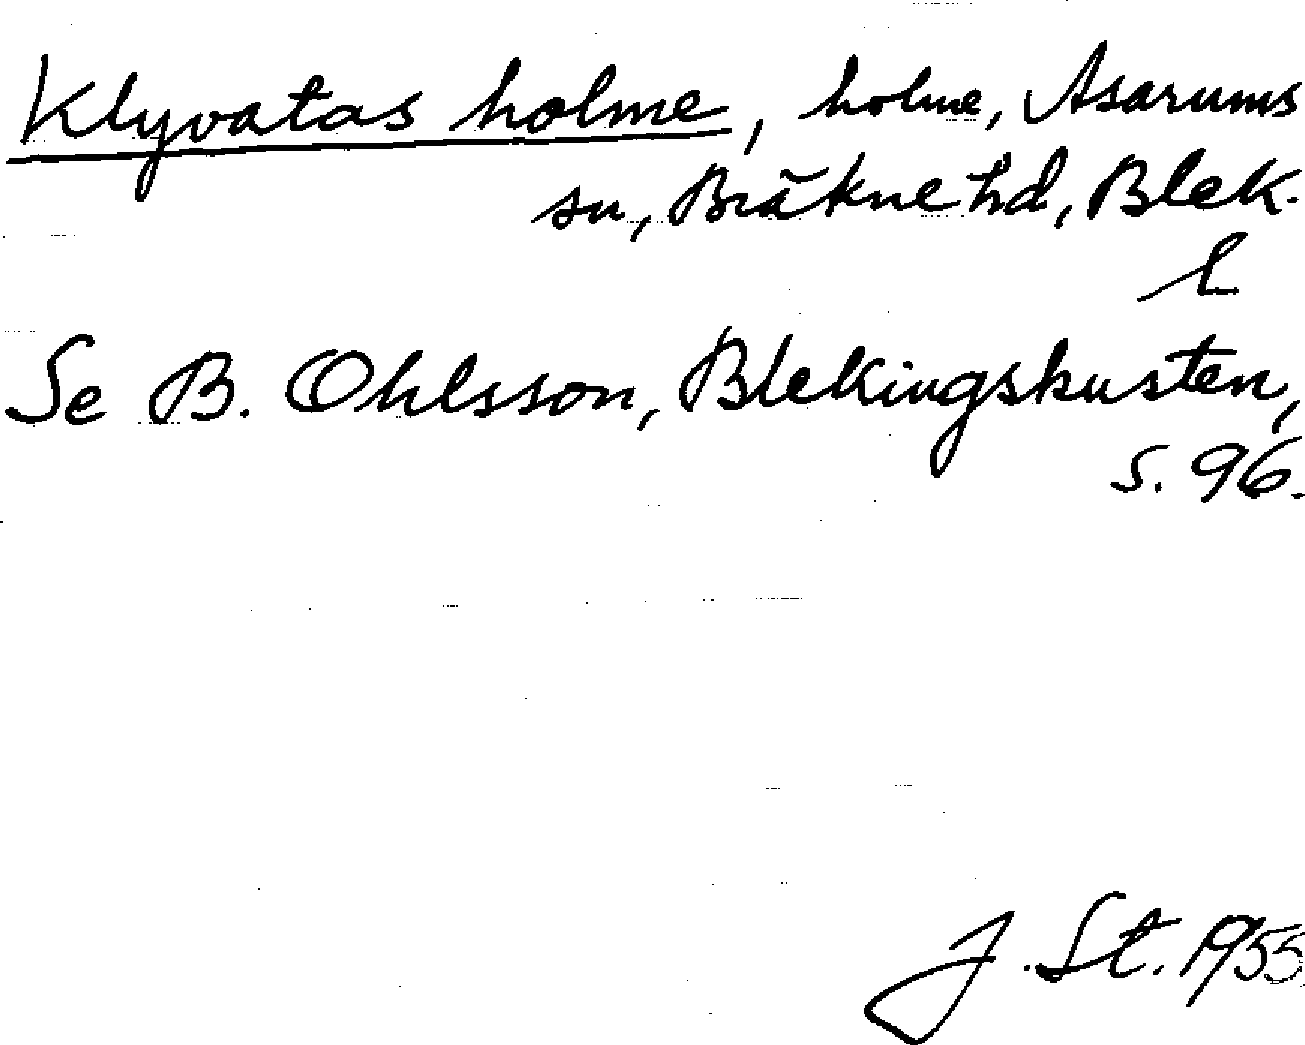 Klyvatas holme, holme, Asarums
sn, Bräkne hd, Blek.
l
Se B. Ohlsson, Blekingskusten,
s. 96.
J. St. 1955